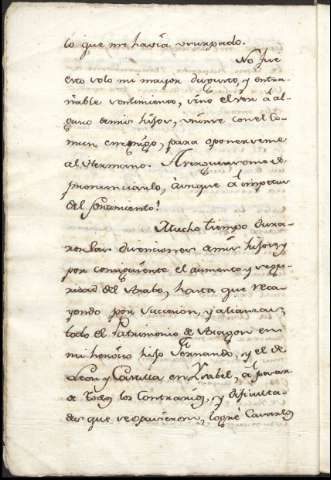 lo que me havia usurpado.
No fue
esto solo mi mayor disgusto, y entra-
ñable sentimiento, sino el ver à al-
guno de mis hijos, unirse con el co-
mun enemigo, para oponerseme
al Hermano.
pronunciarlo, aunque à impetus
del sentimiento!
Mucho tiempo dura-
ron las divenciones de mis hijos, y
por consiguiente el aumento y segu-
ridad del Brabo, hasta que reca-
yendo por succesion, y alianzas,
todo el Patrimonio de Aragon en
mi honòrio hijo Fernando, y el de
Leon y Castilla en Ysabèl, a pesar
de todos los Contrarios, y dificulta-
des que se opusieron, logrè